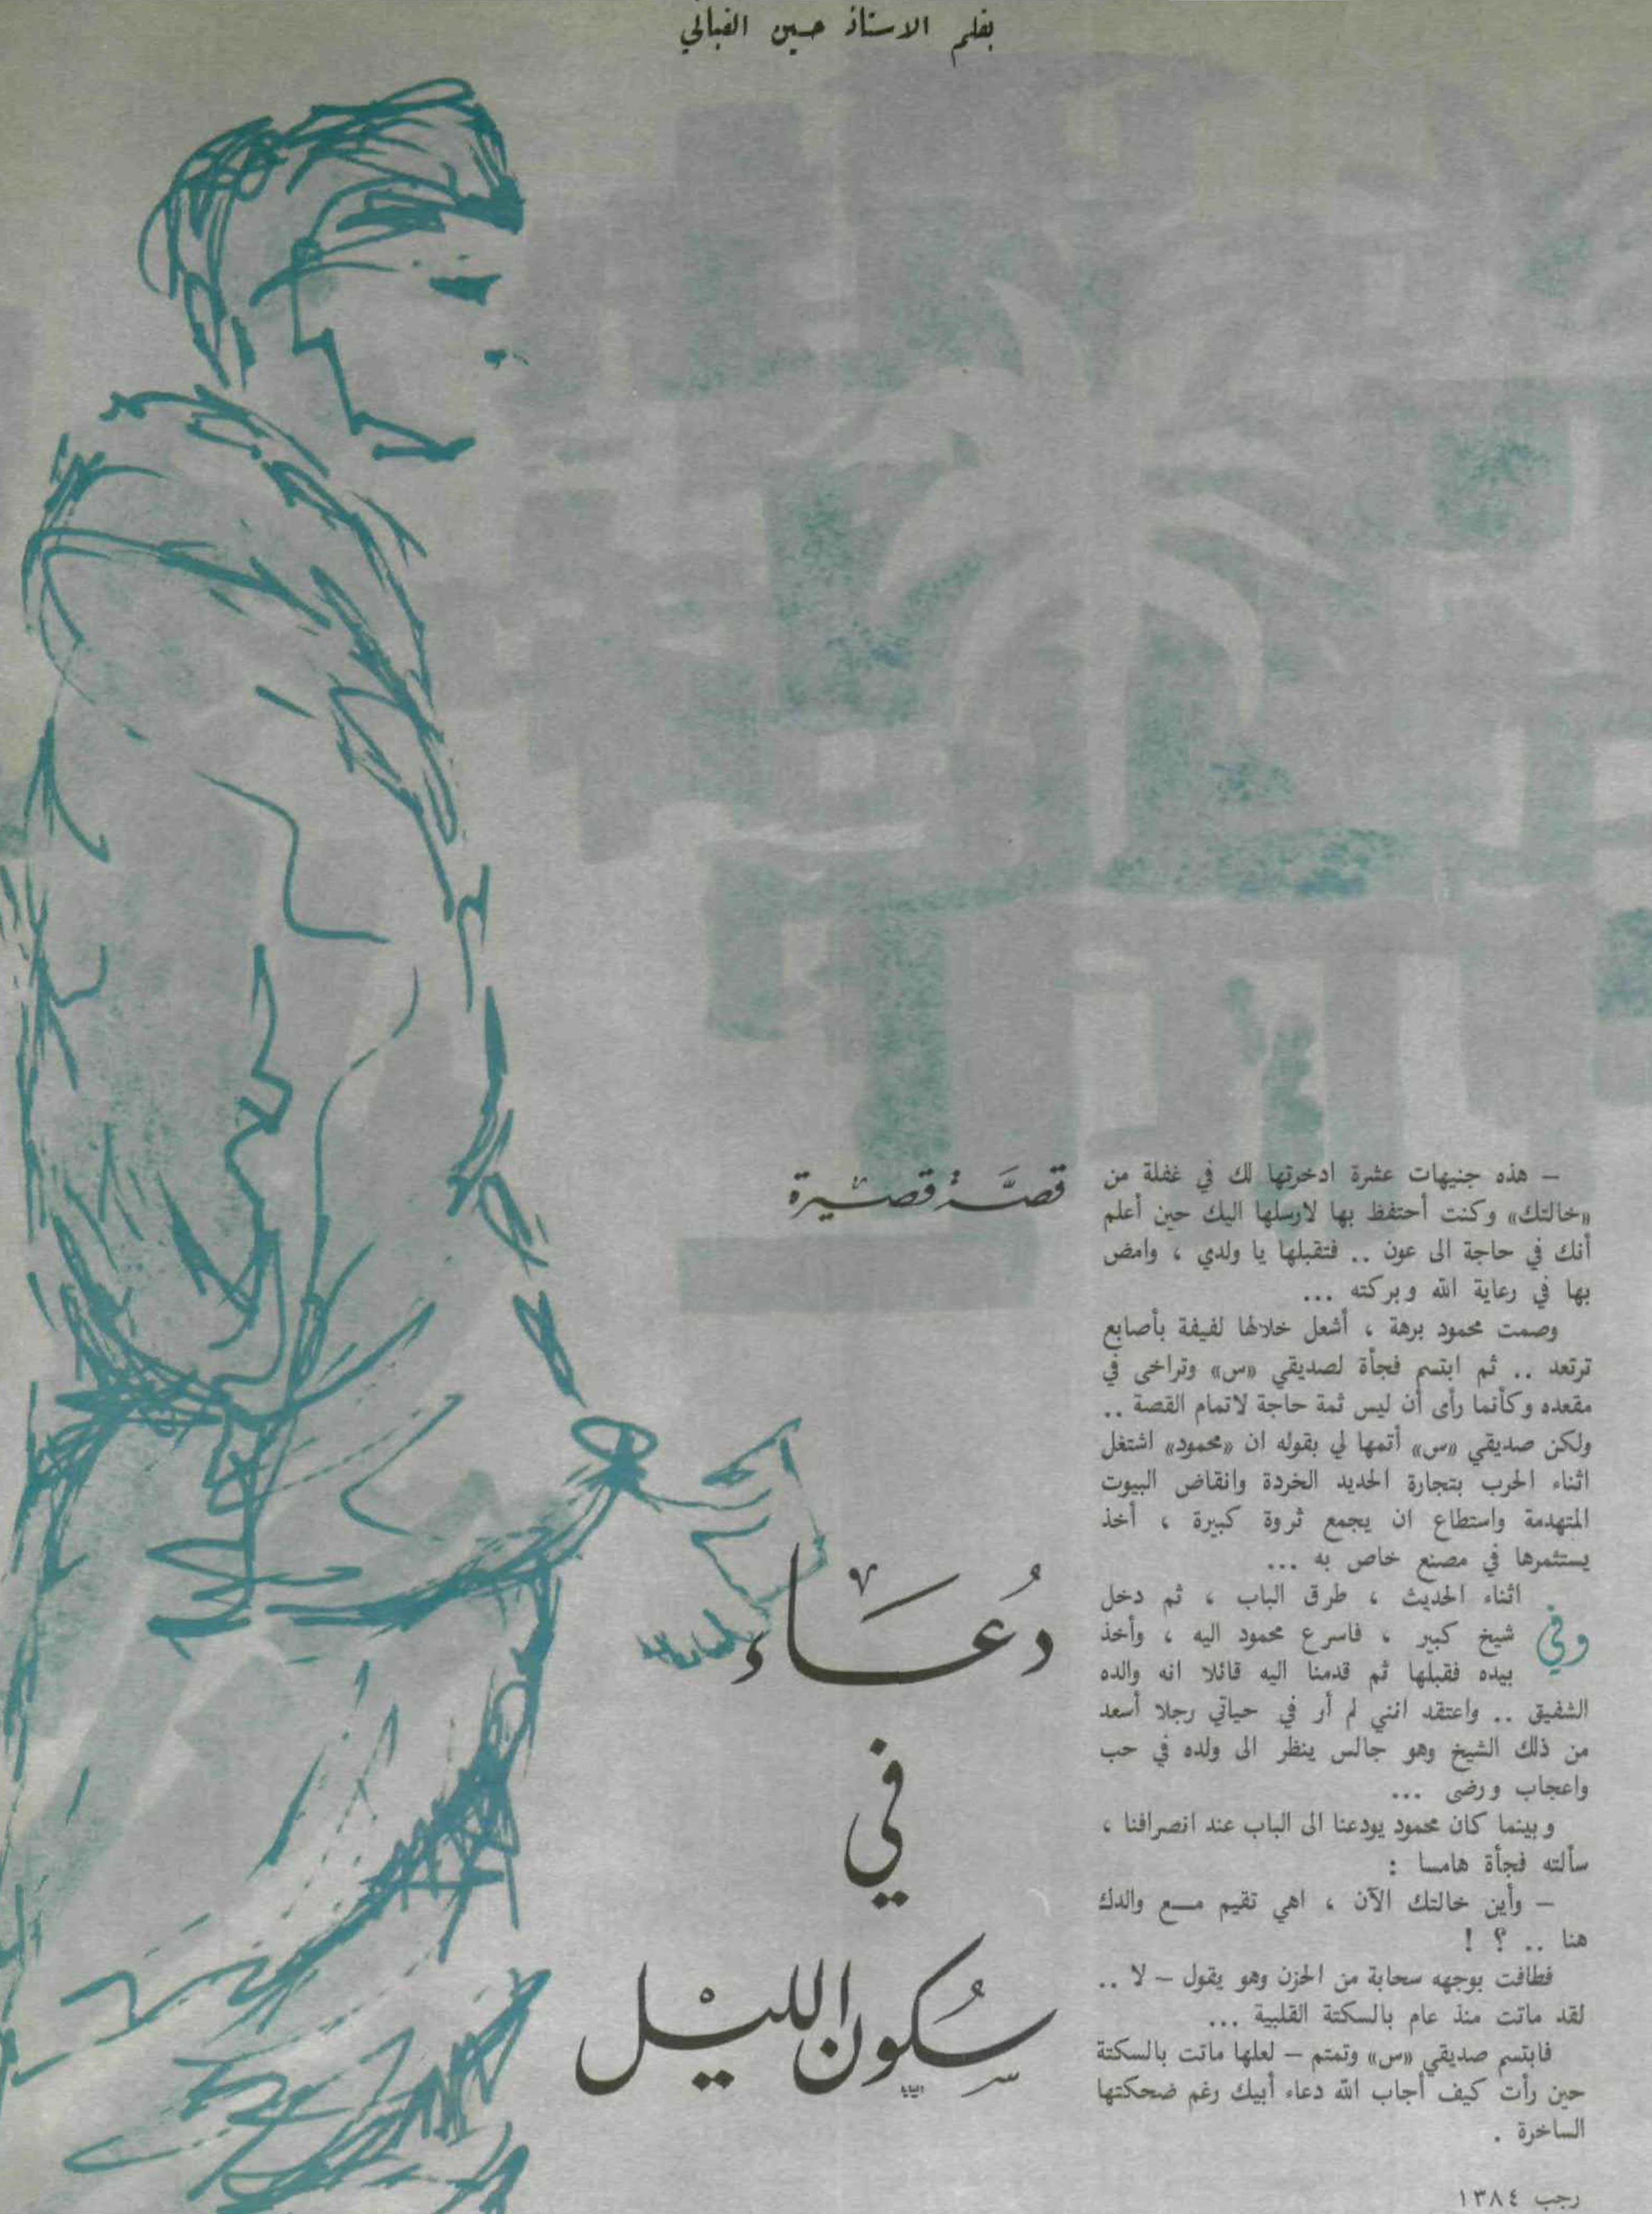 بقلم الاستاذ حسين القباني
قصة قصيرة
دُعَاء
في
سُكون الليْل
– هذه جنيهات عشرة ادخرتها لك في غفلة من
«خالتك» وكنت أحتفظ بها لارسلها اليك حين أعلم
أنك في حاجة الى عون .. فتقبلها يا ولدي ، وامض
بها في رعاية الله وبركته ...
وصمت محمود برهة ، أشعل خلالها لفيفة بأصابع
ترتعد .. ثم ابتسم فجأة لصديقي «س» وتراخى في
مقعده وكأنما رأى أن ليس ثمة حاجة لاتمام القصة ..
ولكن صديقي «س» أتمها لي بقوله ان «محمود» اشتغل
اثناء الحرب بتجارة الحديد الخردة وانقاض البيوت
المتهدمة واستطاع ان يجمع ثروة كبيرة ، أخذ
يستثمرها في مصنع خاص به ...
وفي اثناء الحديث ، طرق الباب ، ثم دخل
شيخ كبير ، فاسرع محمود اليه ، وأخذ
بيده فقبلها ثم قدمنا اليه قائلا انه والده
الشفيق .. واعتقد انني لم أر في حياتي رجلا أسعد
من ذلك الشيخ وهو جالس ينظر الى ولده في حب
واعجاب ورضى ...
وبينما كان محمود يودعنا الى الباب عند انصرافنا ،
سألته فجأة هامسا :
– وأين خالتك الآن ، اهي تقيم مع والدك
هنا .. ؟ !
فطافت بوجهه سحابة من الحزن وهو يقول – لا ..
لقد ماتت منذ عام بالسكتة القلبية ...
فابتسم صديقي «س» وتمتم – لعلها ماتت بالسكتة
حين رأت كيف أجاب الله دعاء أبيك رغم ضحكتها
الساخرة .
رجب ١٣٨٤